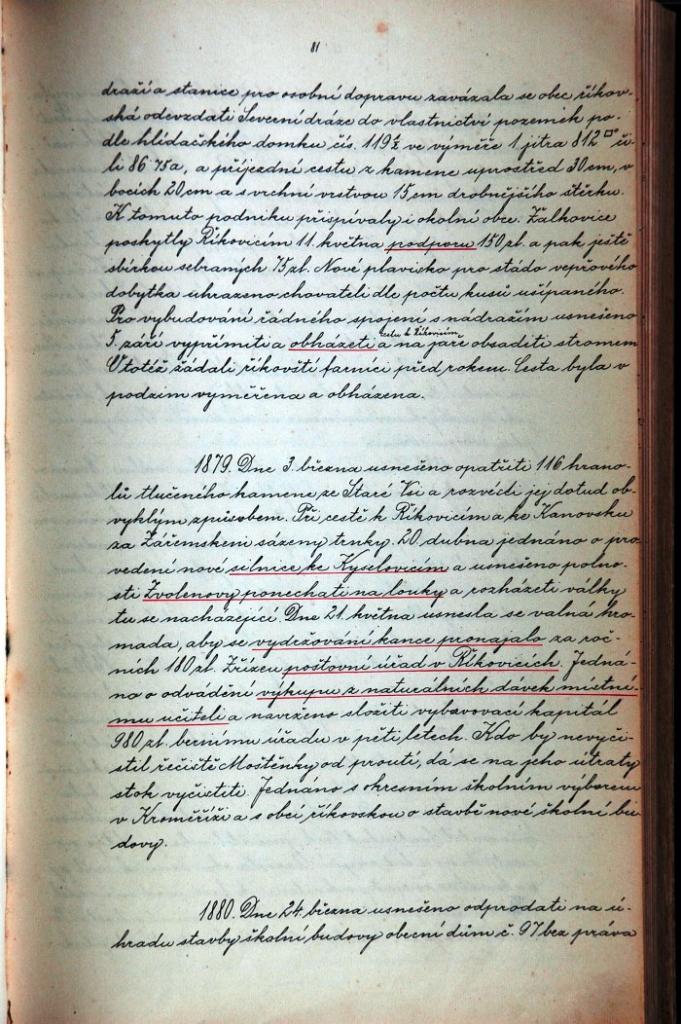 81
draží a stanice pro osobní dopravu zavázala se obec říkov-
ská odevzdati Severní dráze do vlastnictví pozemek po-
dle hlídačského domku čís. 119½ ve výměře 1 jitra 812 □° či-
li 86·75a, a příjezdní cestu z kamene uprostřed 30 cm, v
bocích 20 cm a s vrchní vrstvou 15 cm drobnějšího štěrku.
K tomuto podniku přispívaly i okolní obce. Žalkovice
poskytly Říkovicím 11. května podporu 150 zl. a pak ještě
sbírkou sebraných 75 zl. Nové plavisko pro stádo vepřového
dobytka uhrazeno chovateli dle počtu kusů ušípaného.
Pro vybudování řádného spojení s nádražím usneseno
cestu k Říkovicím
5. září vypřímiti a obházeti a na jaře obsaditi stromem
O totéž žádali říkovští farníci před rokem. Cesta byla v
podzim vyměřena a obházena.
1879. Dne 3. března usneseno opatřiti 116 hrano-
lů tlučeného kamene ze Staré Vsi a rozvésti jej dotud ob-
vyklým způsobem. Při cestě k Říkovicím a ke Kanovsku
za Zářemskem sázeny trnky. 20. dubna jednáno o pro-
vedení nové silnice ke Kyselovicím a usneseno polno-
sti Zvolenovy ponechati na louky a rozházeti války
tu se nacházející. Dne 21. května usnesla se valná hro-
mada, aby se vydržování kance pronajalo za roč-
ních 180 zl. Zřízen poštovní úřad v Říkovicích. Jedná-
no o odvádění výkupu z naturálních dávek místní-
mu učiteli a navrženo složiti vybavovací kapitál
980 zl. bernímu úřadu v pěti letech. Kdo by nevyči-
stil řečiště Moštěnky od proutí, dá se na jeho útraty
stok vyčistiti. Jednáno s okresním školním výborem
v Kroměříži a s obcí říkovskou o stavbě nové školní bu-
dovy.
1880. Dne 24. března usneseno odprodati na ú-
hradu stavby školní budovy obecní dům č. 97 bez práva